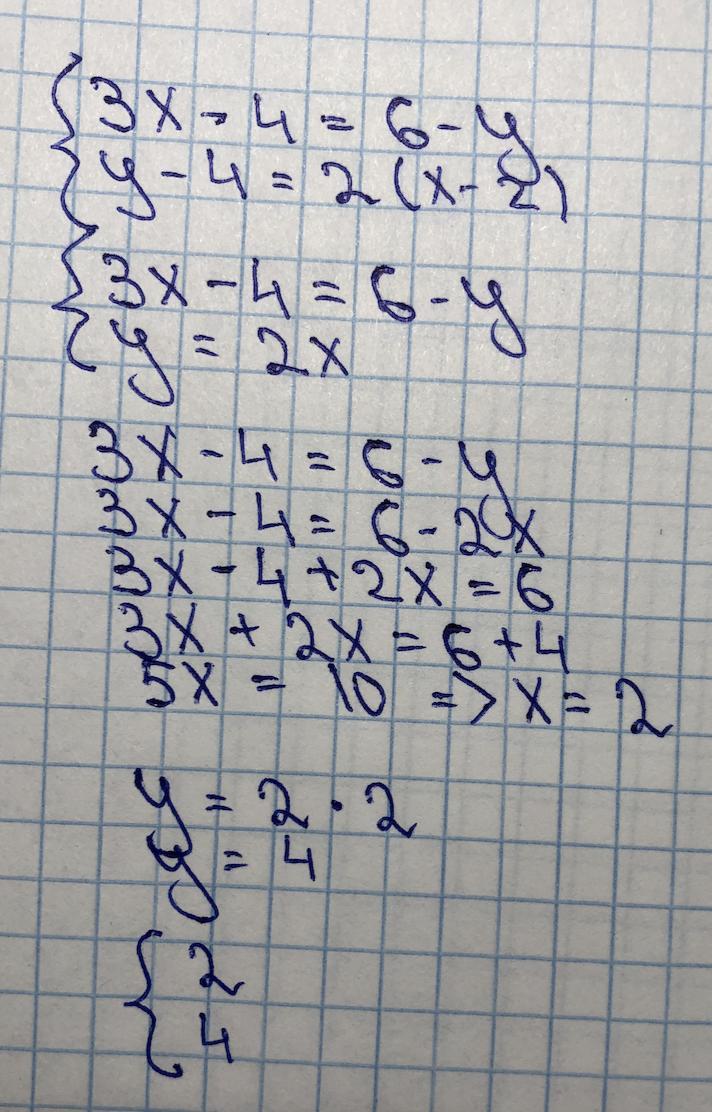 3x - 4 = 6 - y
y - 4 = 2(x - 2)
3x - 4 = 6 - y
y = 2x
3x - 4 = 6 - y
3x - 4 = 6 - 2x
3x - 4 + 2x = 6
3x + 2x = 6 + 4
5x = 10 => x = 2
y = 2 · 2
y = 4
2
4